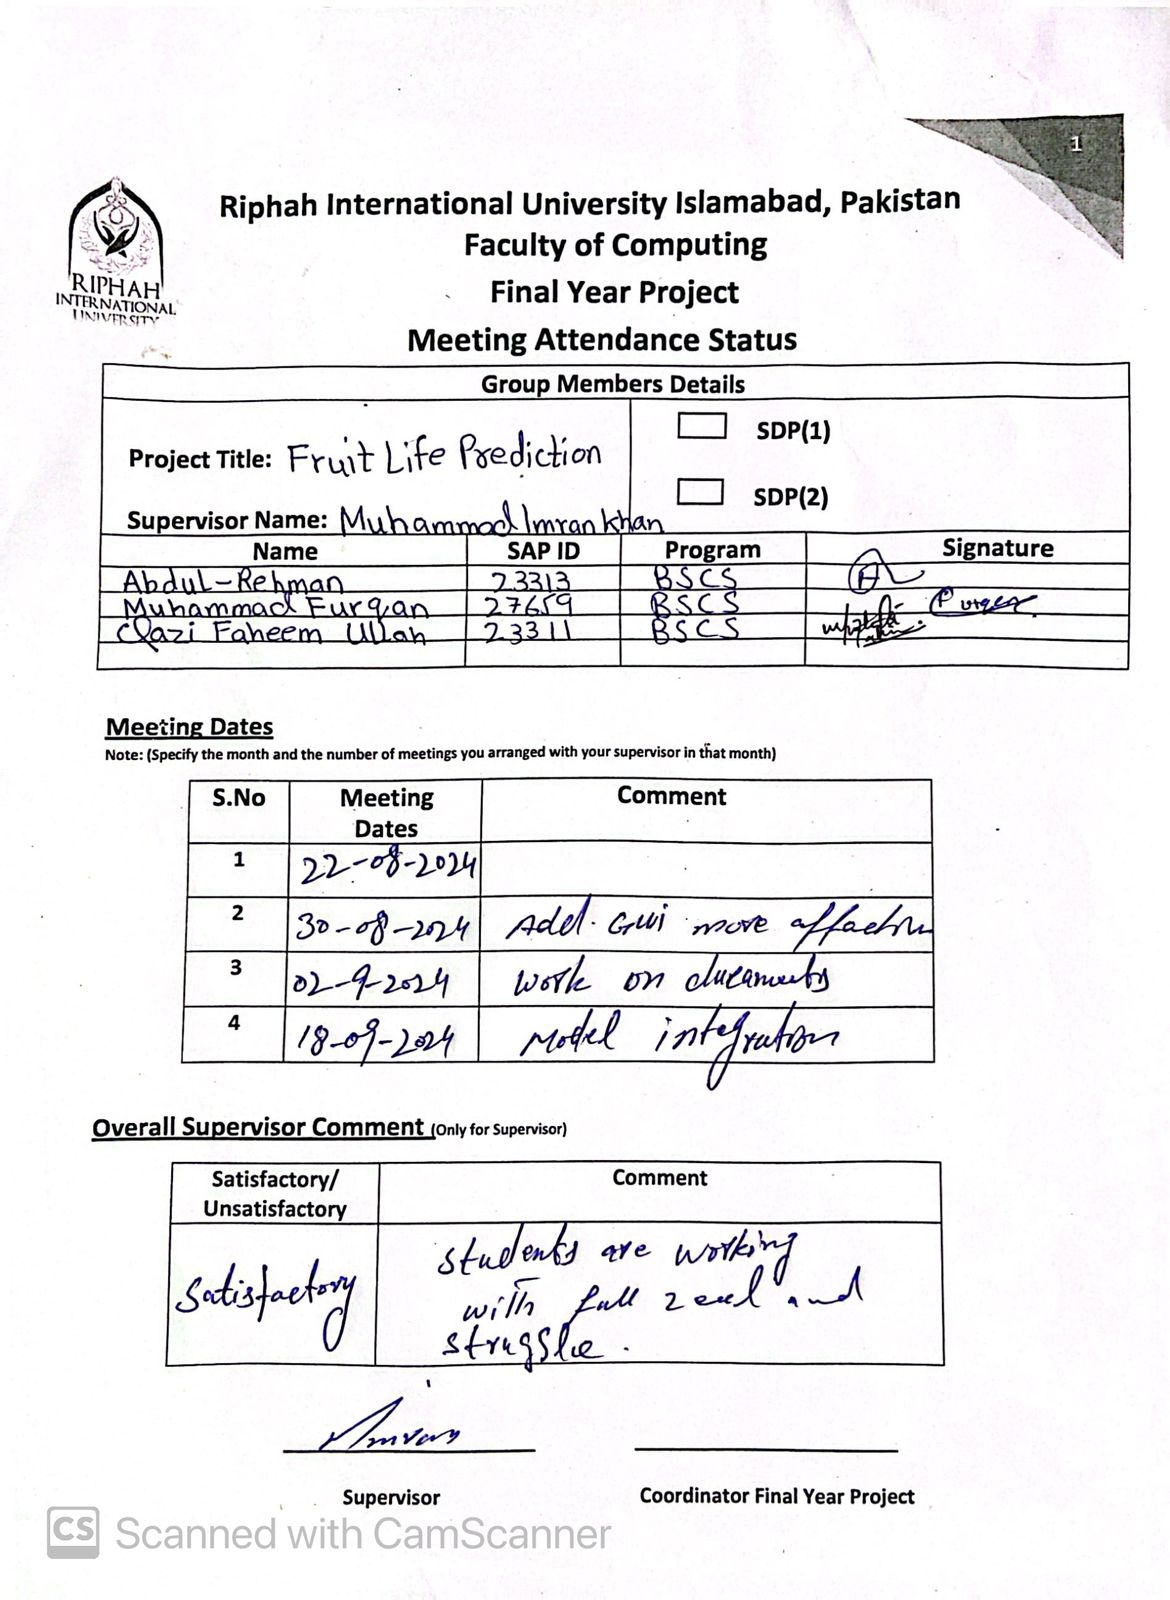 1
RIPHAH
INTERNATIONAL
UNIVERSITY
Riphah International University Islamabad, Pakistan
Faculty of Computing
Final Year Project
Meeting Attendance Status
Group Members Details
Project Title: Fruit Life Prediction
SDP(1)
SDP(2)
Supervisor Name: Muhammad Imran khan
Name SAP ID Program Signature
Abdul-Rehman 23313 BSCS
Muhammad Furqan 27659 BSCS
Qazi Faheem Ullah 23311 BSCS
Meeting Dates
Note: (Specify the month and the number of meetings you arranged with your supervisor in that month)
S.No Meeting Dates Comment
1 22-08-2024
2 30-08-2024 Add. GUI more
3 02-9-2024 work on
4 18-09-2024 Model integration
Overall Supervisor Comment (Only for Supervisor)
Satisfactory/
Unsatisfactory
Comment
Satisfactory
students are working
with full zeal and
Supervisor
Coordinator Final Year Project
CS Scanned with CamScanner